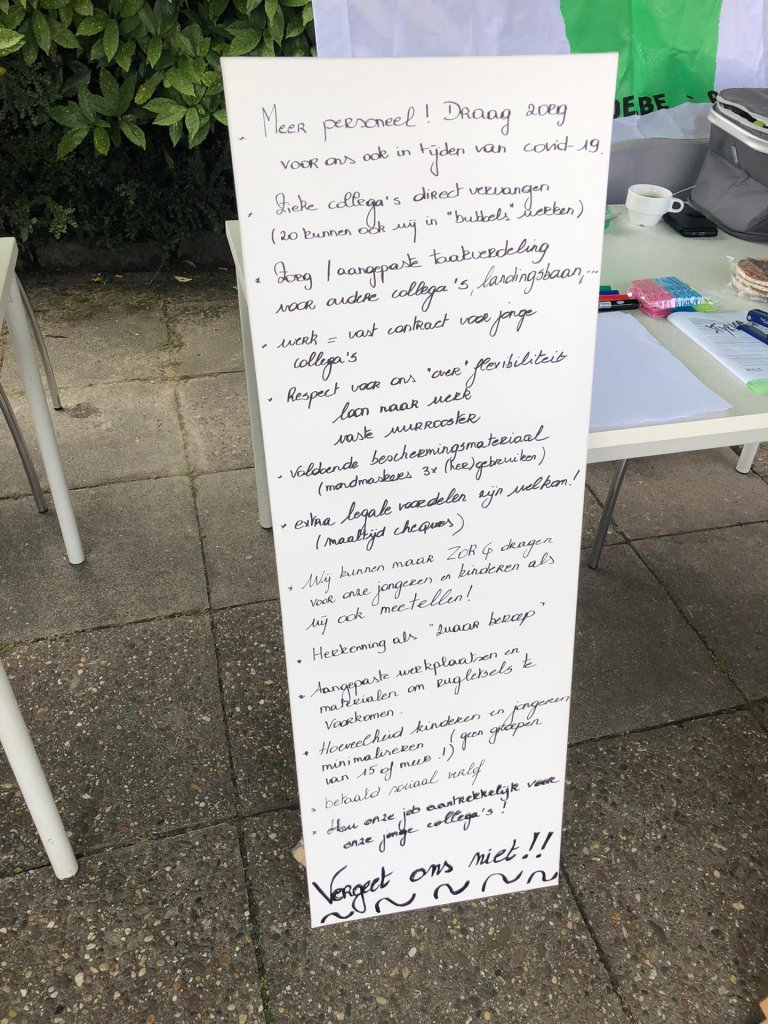 * Meer personeel! Draag zorg
voor ons ook in tijden van covid-19.
* Zieke collega's direct vervangen
(zo kunnen ook wij in "bubbels" werken)
* Zorg / aangepaste taakverdeling
voor andere collega's, landingsbaan,...
* werk = vast contract voor jonge
collega's
* Respect voor ons "over" flexibiliteit
loon naar werk
vaste uurrooster
* voldoende beschermingsmateriaal
(mondmaskers 3x (her)gebruiken)
* extra legale voordelen zijn welkom!
(maaltijd cheques)
* Wij kunnen maar ZORG dragen
voor onze jongeren en kinderen als
wij ook meetellen!
* Herkenning als "zwaar beroep"
* Aangepaste werkplaatsen en
materialen om rugletsels te
voorkomen.
* Hoeveelheid kinderen en jongeren
minimaliseren (geen groepen
van 15 of meer!)
* betaald sociaal verlof
* Hou onze job aantrekkelijk voor
onze jonge collega's!
Vergeet ons niet!!